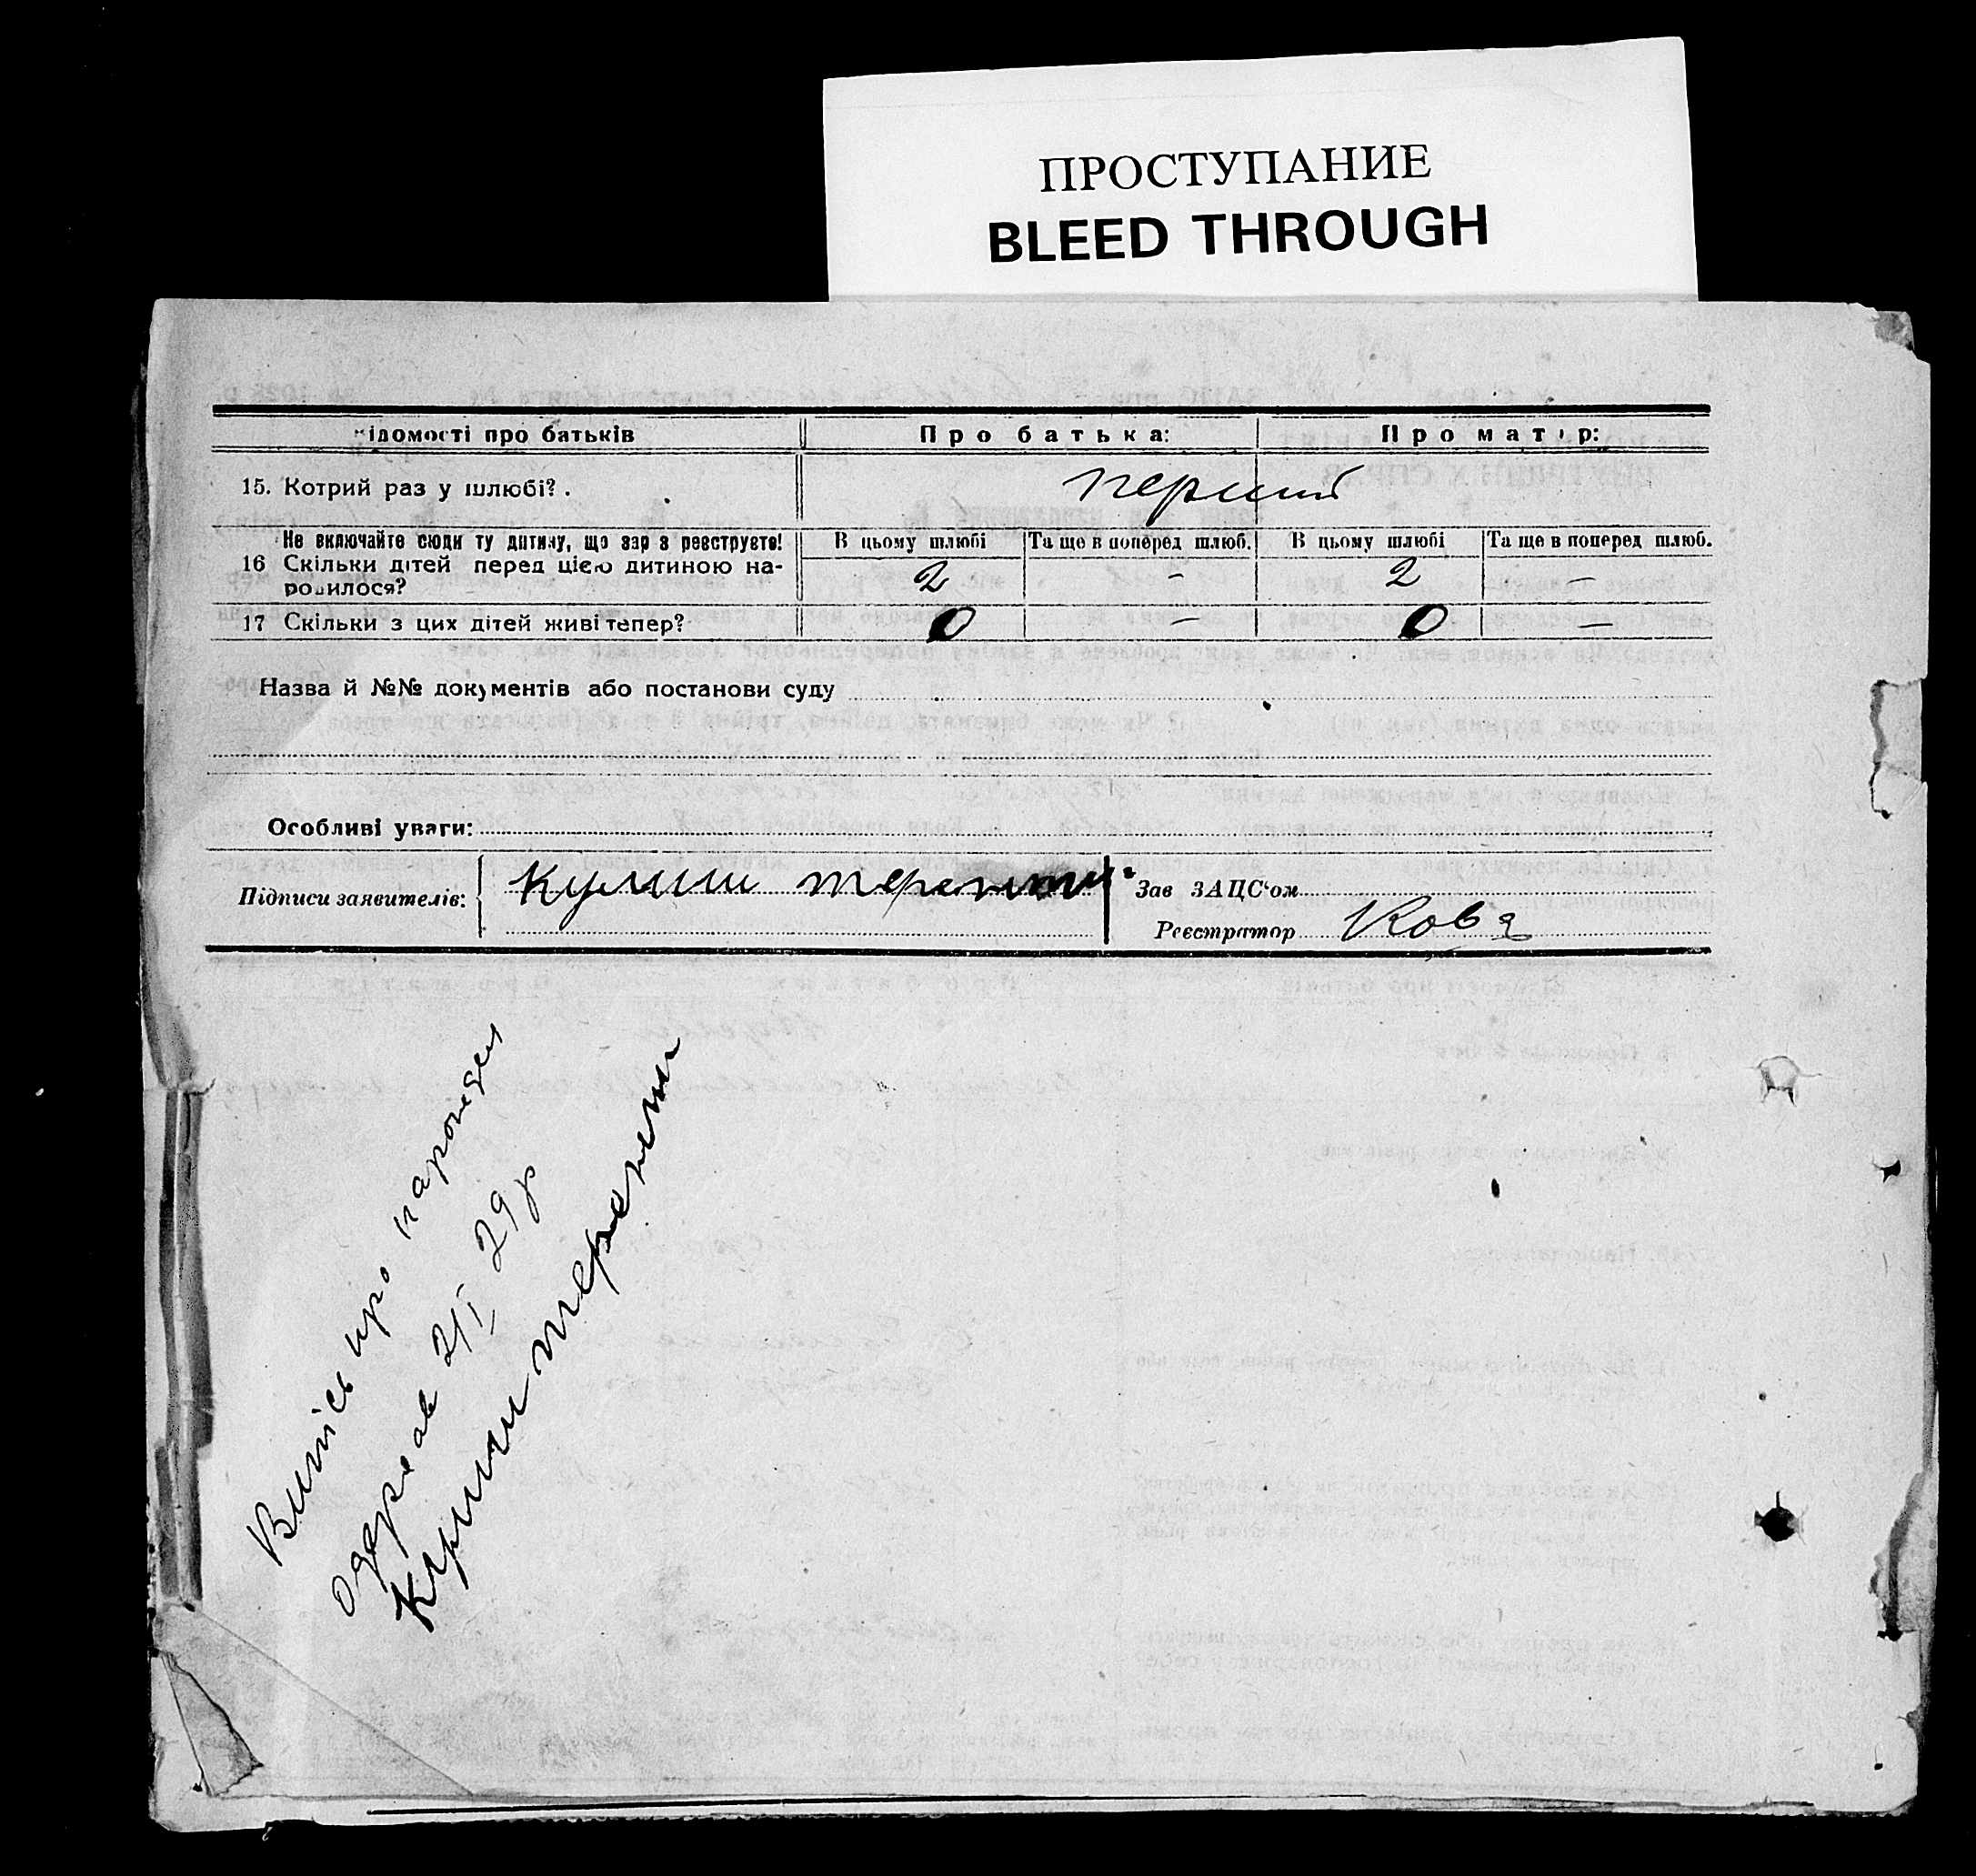 ПРОСТУПАНИЕ
BLEED THROUGH
ідомості про батьків Про батька: Про матір:
15. Котрий раз у шлюбі? . перший
Не включайте сюди ту дитину, що зараз реєструєте! В цьому шлюбі Та ще в поперед шлюб. В цьому шлюбі Та ще в поперед шлюб.
16 Скільки дітей перед цією дитиною на- 2 – 2 –
родилося?
17 Скільки з цих дітей живі тепер? 0 – 0 –
Назва й №№ документів або постанови суду
Особливі уваги:
Підписи заявителів: Кулиш Зав ЗАЦС‘ом
Реєстратор Кова
Випись про
одержав 2/I 29 р